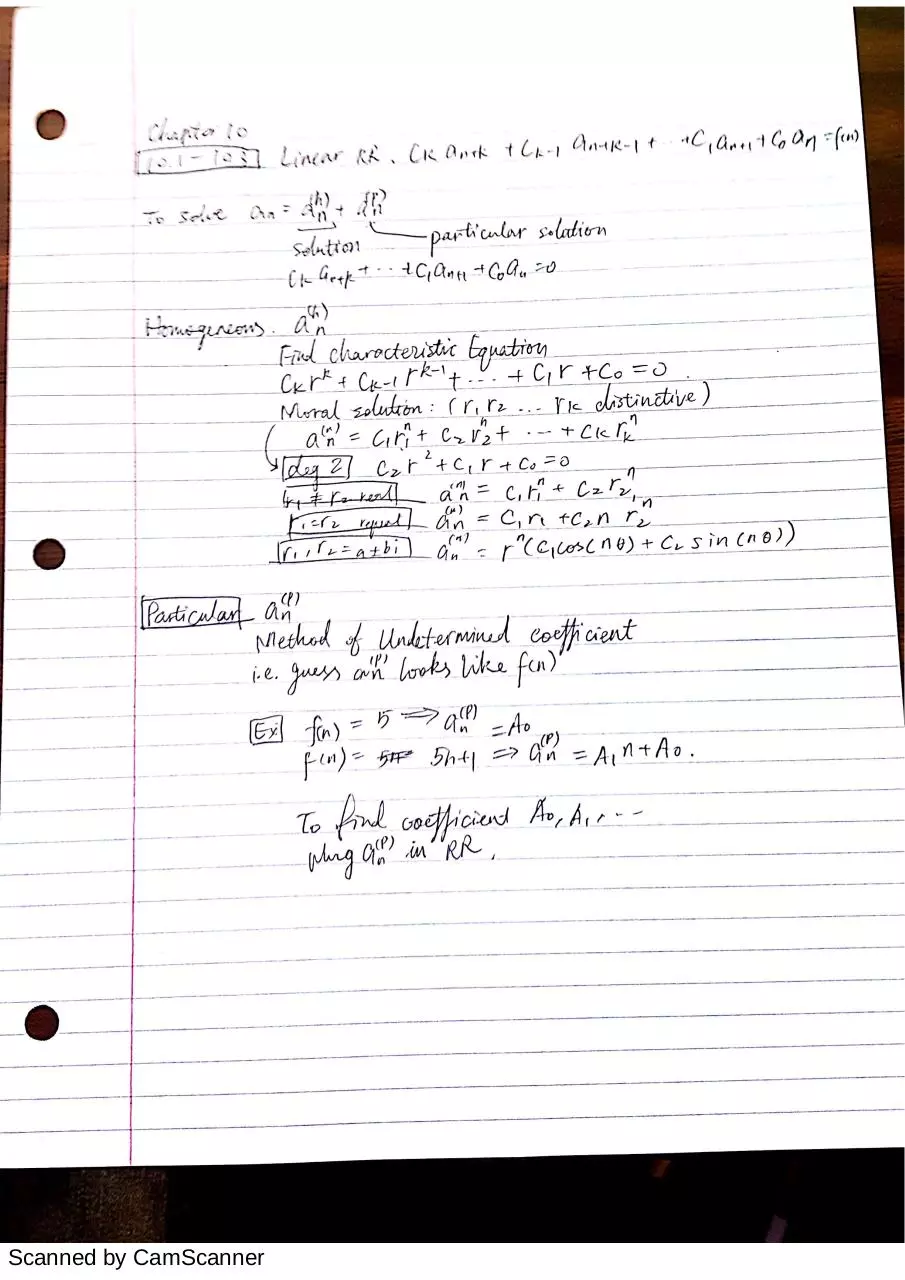 Chapter 10
10.1-10.3 Linear RR. Ck an+k + Ck-1 an+k-1 + ... + C1 an+1 + C0 an = f(n)
To solve an = an^(h) + an^(p)
solution particular solution
Ck an+k + ... + C1 an+1 + C0 an = 0
Homogeneous. an^(h)
Find characteristic Equation
Ck r^k + Ck-1 r^k-1 + ... + C1 r + C0 = 0.
Moral solution: (r1 r2 ... rk distinctive)
an^(n) = C1 r1^n + C2 r2^n + ... + Ck rk^n
deg 2 C2 r^2 + C1 r + C0 = 0
r1 ≠ r2 real an^(n) = C1 r1^n + C2 r2^n
r1 = r2 repeat an^(n) = C1 r1 + C2 n r2^n
r1, r2 = a+bi an^(n) = r^n (C1 cos(nθ) + C2 sin(nθ))
Particular an^(p)
Method of Undetermined coefficient
i.e. guess an^(p) looks like f(n)
Ex f(n) = 5 ⇒ an^(p) = A0
f(n) = 5n+1 ⇒ an^(p) = A1 n + A0.
To find coefficient A0, A1, ...
plug an^(p) in RR.
Scanned by CamScanner